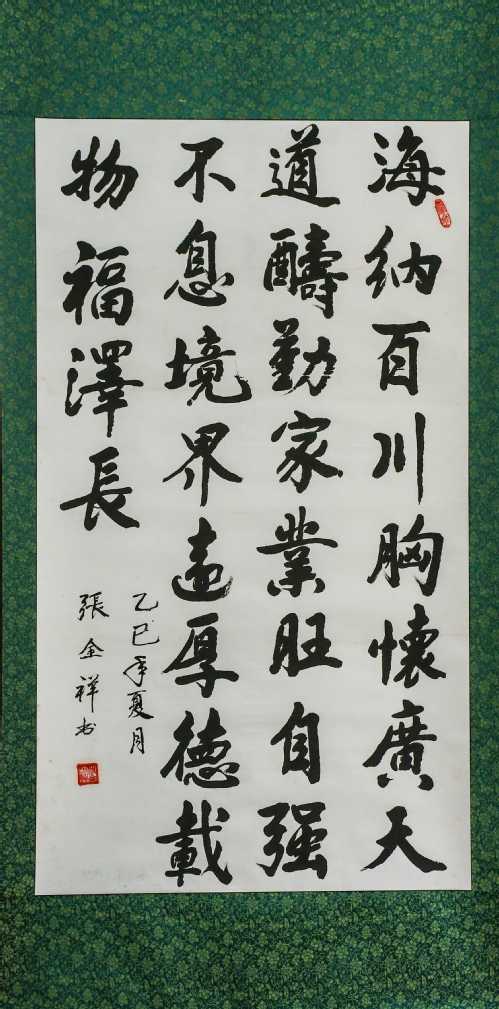 海納百川胸懷廣天
道醻勤家業旺自强
不息境界遠厚德載
物福澤長
乙巳年夏月
張全祥书